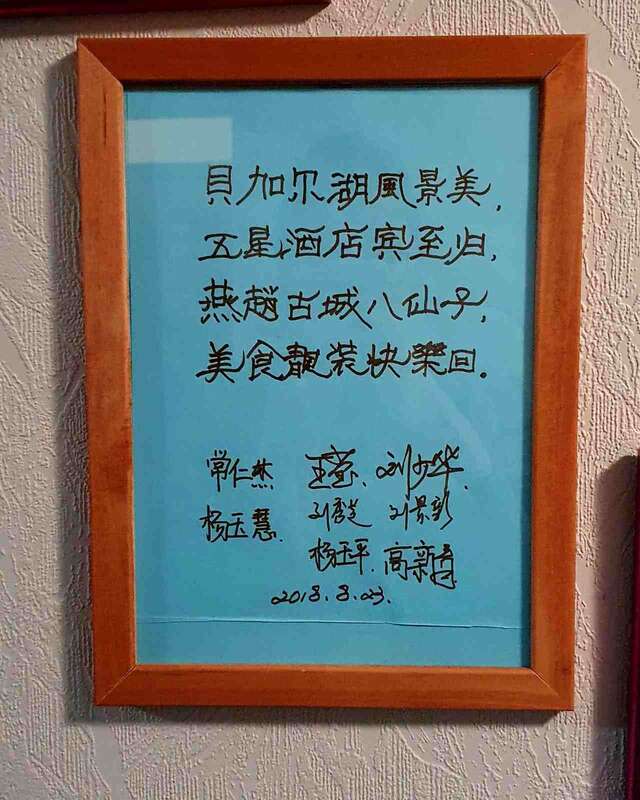 貝加尔湖風景美,
五星酒店宾至归,
燕趙古城八仙子,
美食靓装快樂回。
常仁杰 刘少华.
杨玉慧. 刘景彩
杨玉平. 高新
2018.8.23.